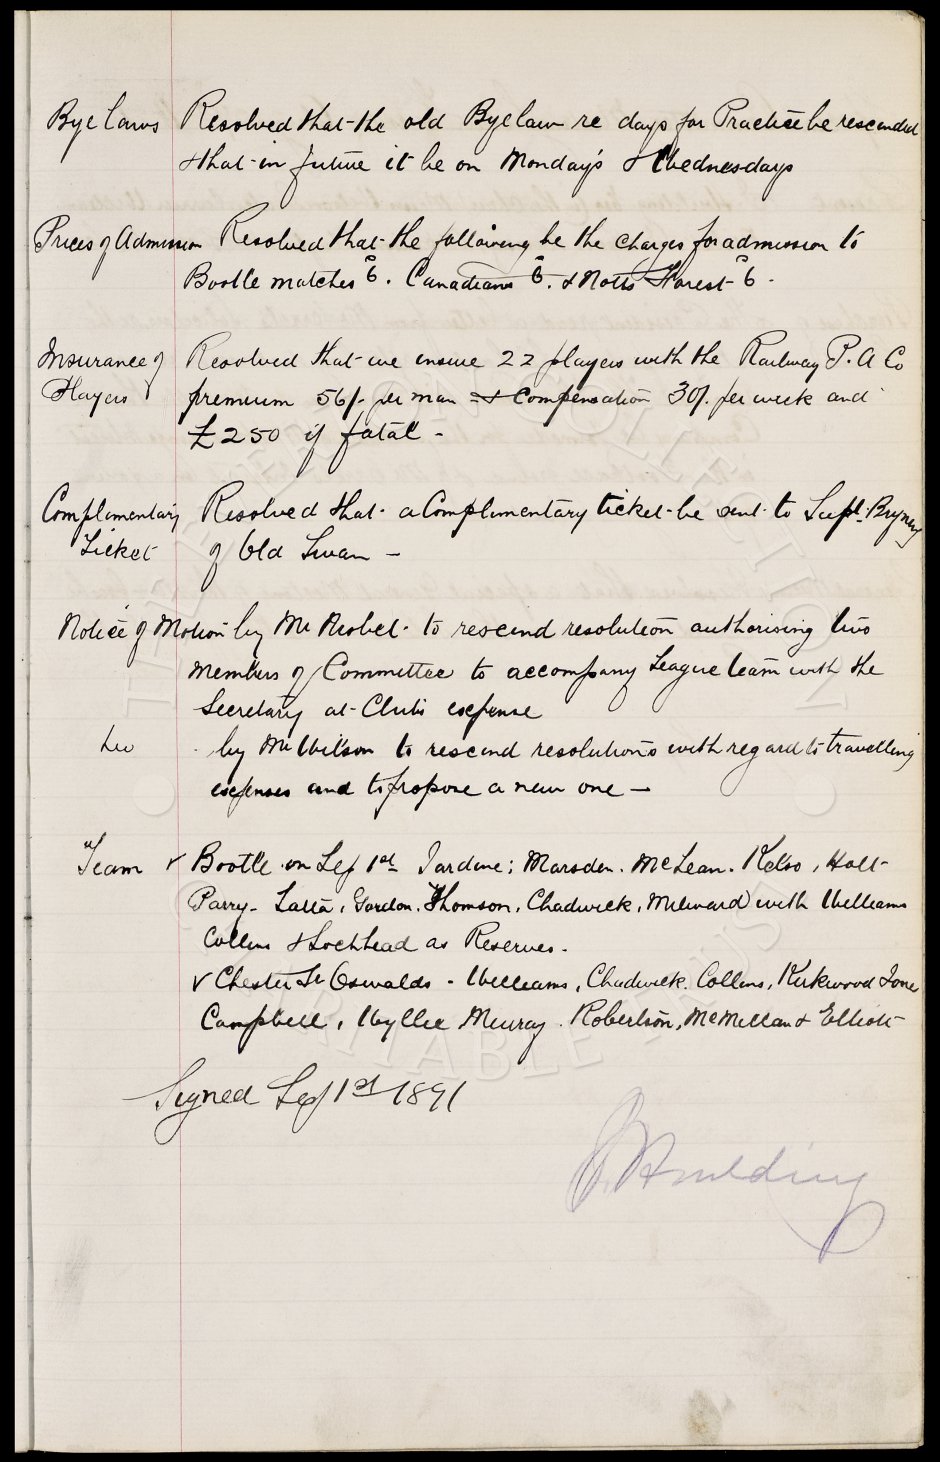 Bye laws Resolved that the old Byelaw re days for Practice be rescinded
& that in future it be on Monday's & Wednesdays
Prices of Admission Resolved that the following be the charges for admission to
Bootle matches 6. Canadians 6. & Notts Forest 6.
Insurance of Players Resolved that we insure 22 players with the Railway P. A Co
premium 56/- per man & Compensation 30/. per week and
£250 if fatal -
Complimentary Ticket Resolved that a Complimentary ticket be sent to Supt.
of Old Swan -
Notice of Motion by Mr to rescind resolution authorising two
members of Committee to accompany League team with the
Secretary at Club's expense
by Mr Wilson to rescind resolutions with regard to travelling
expenses and to propose a new one -
Team v Bootle on Sep 1st Jardine; Marsden. McLean. Kelso, Holt
Parry - Latta, Gordon. Thomson, Chadwick, Milward with Williams
Collins & Lochhead as Reserves.
v Chester St Oswalds - Williams, Chadwick. Collins, Kirkwood Jone
Campbell, Wyllie Murray. Robertson, McMillan & Elliott
Signed Sep 1st 1891